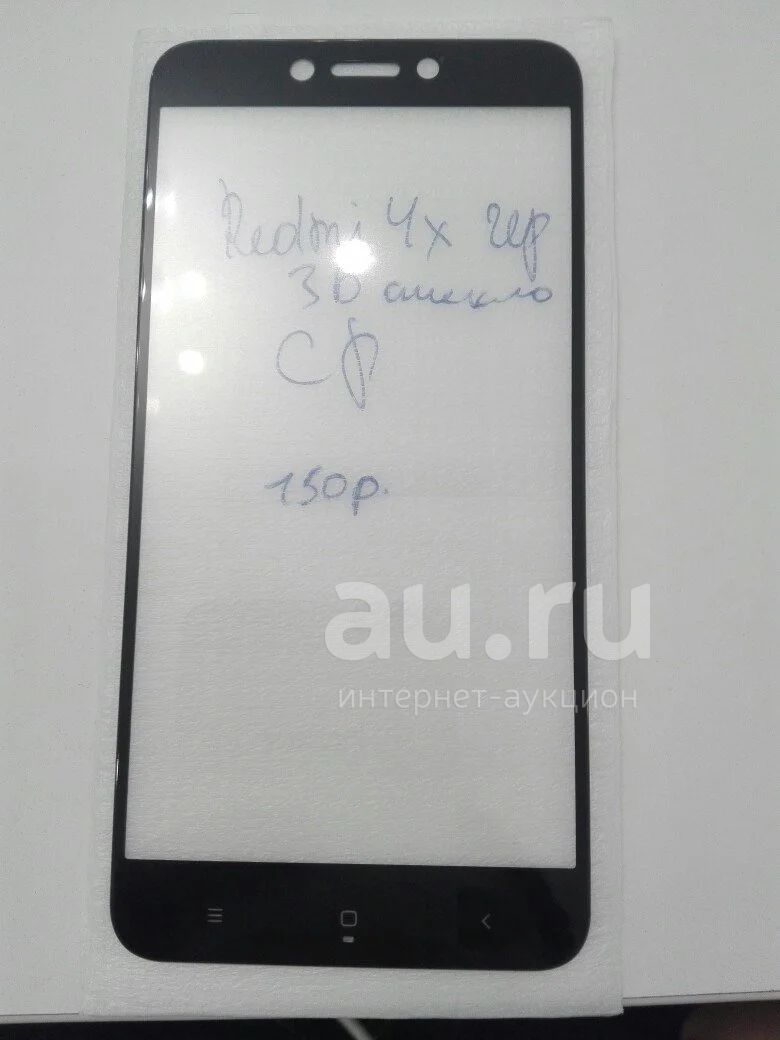 Redmi 4x чер
3D стекло
СФ
150р.
au.ru
интернет-аукцион